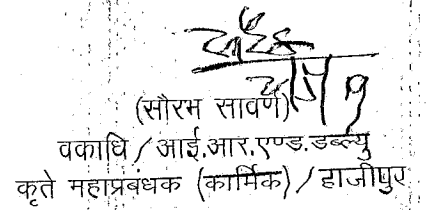 (सौरभ सावर्ण)
वकाधि / आई.आर.एण्ड.डब्ल्यु
कृते महाप्रबंधक (कार्मिक) / हाजीपुर